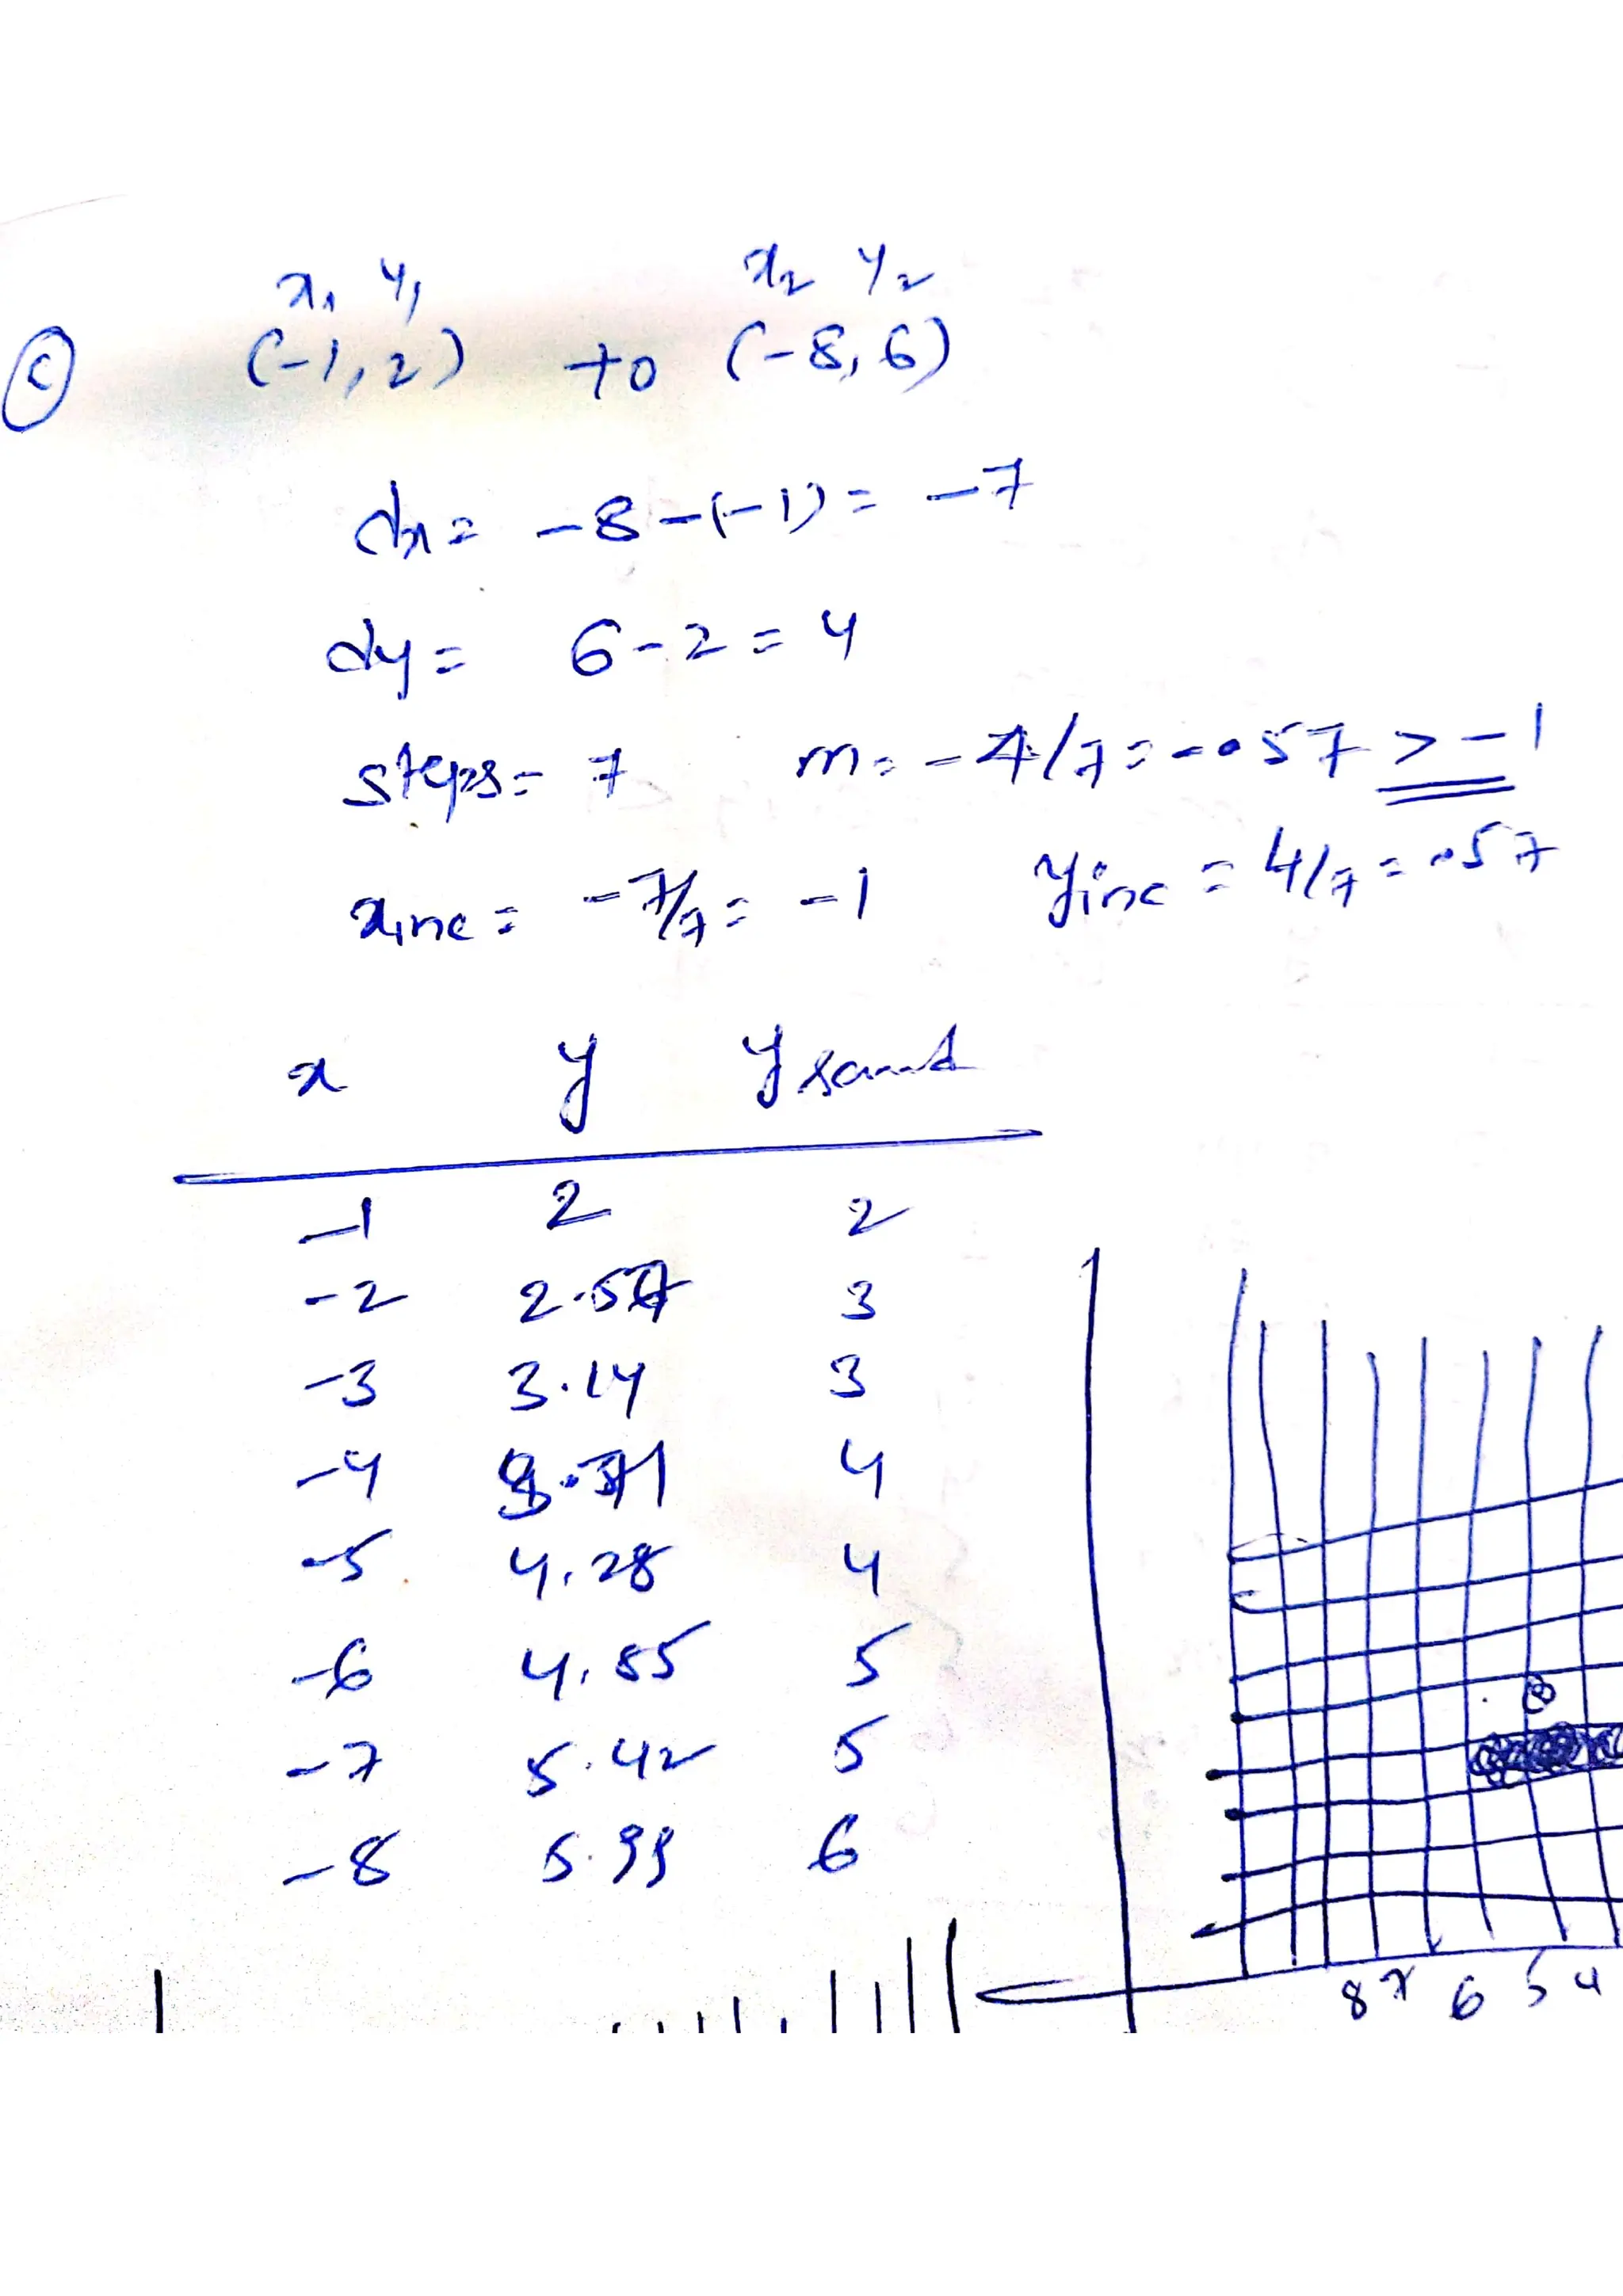 x1 y1 x2 y2
(c) (-1, 2) to (-8, 6)
dx = -8-(-1) = -7
dy = 6-2 = 4
steps = 7 m = -4/7 = -.57 > -1
xinc = -7/7 = -1 yinc = 4/7 = .57
x y y round
-1 2 2
-2 2.57 3
-3 3.14 3
-4 3.71 4
-5 4.28 4
-6 4.85 5
-7 5.42 5
-8 5.99 6
8 7 6 5 4